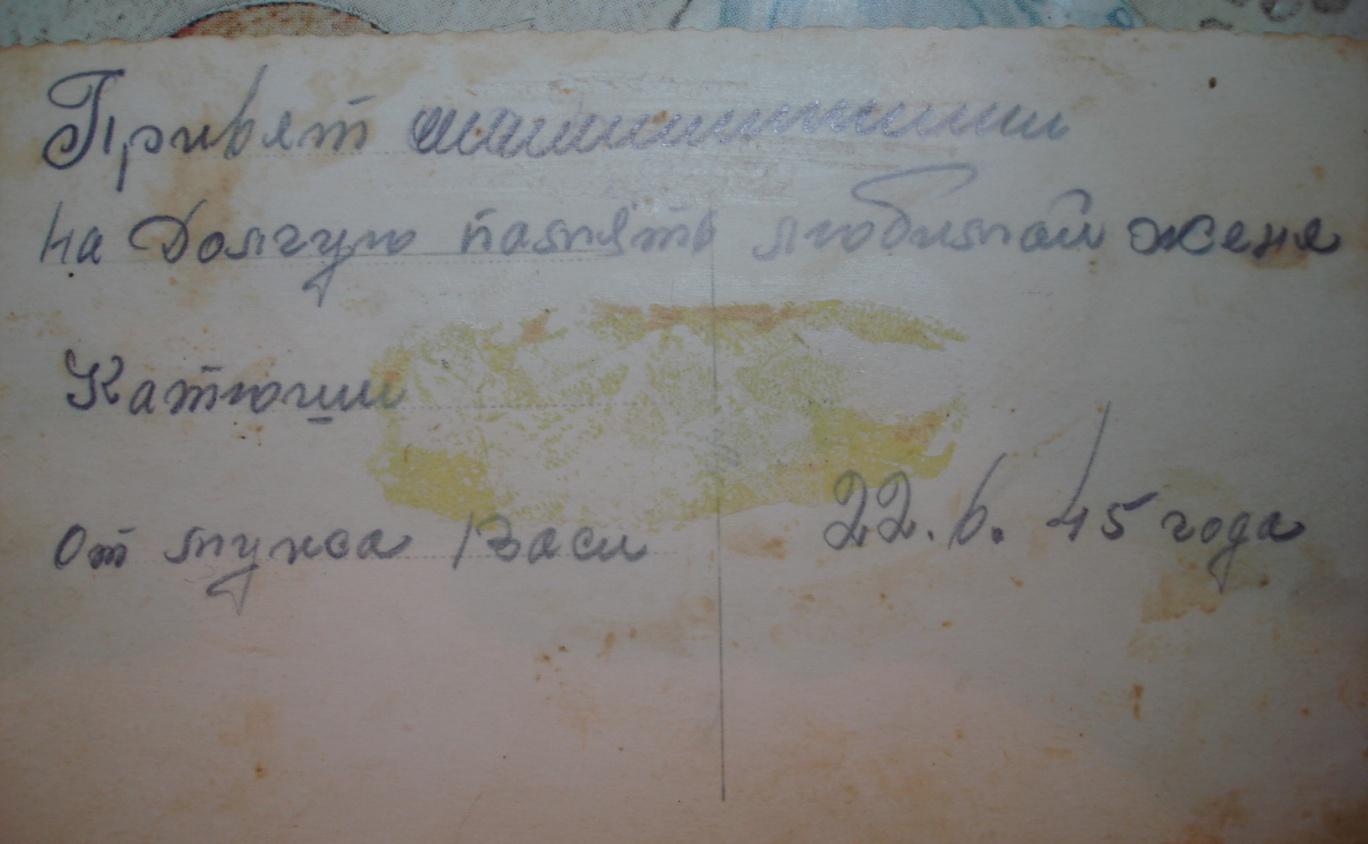 Привят
на Долгую память любимай женя
Катюши
от мужа Васи 22.6.45 года